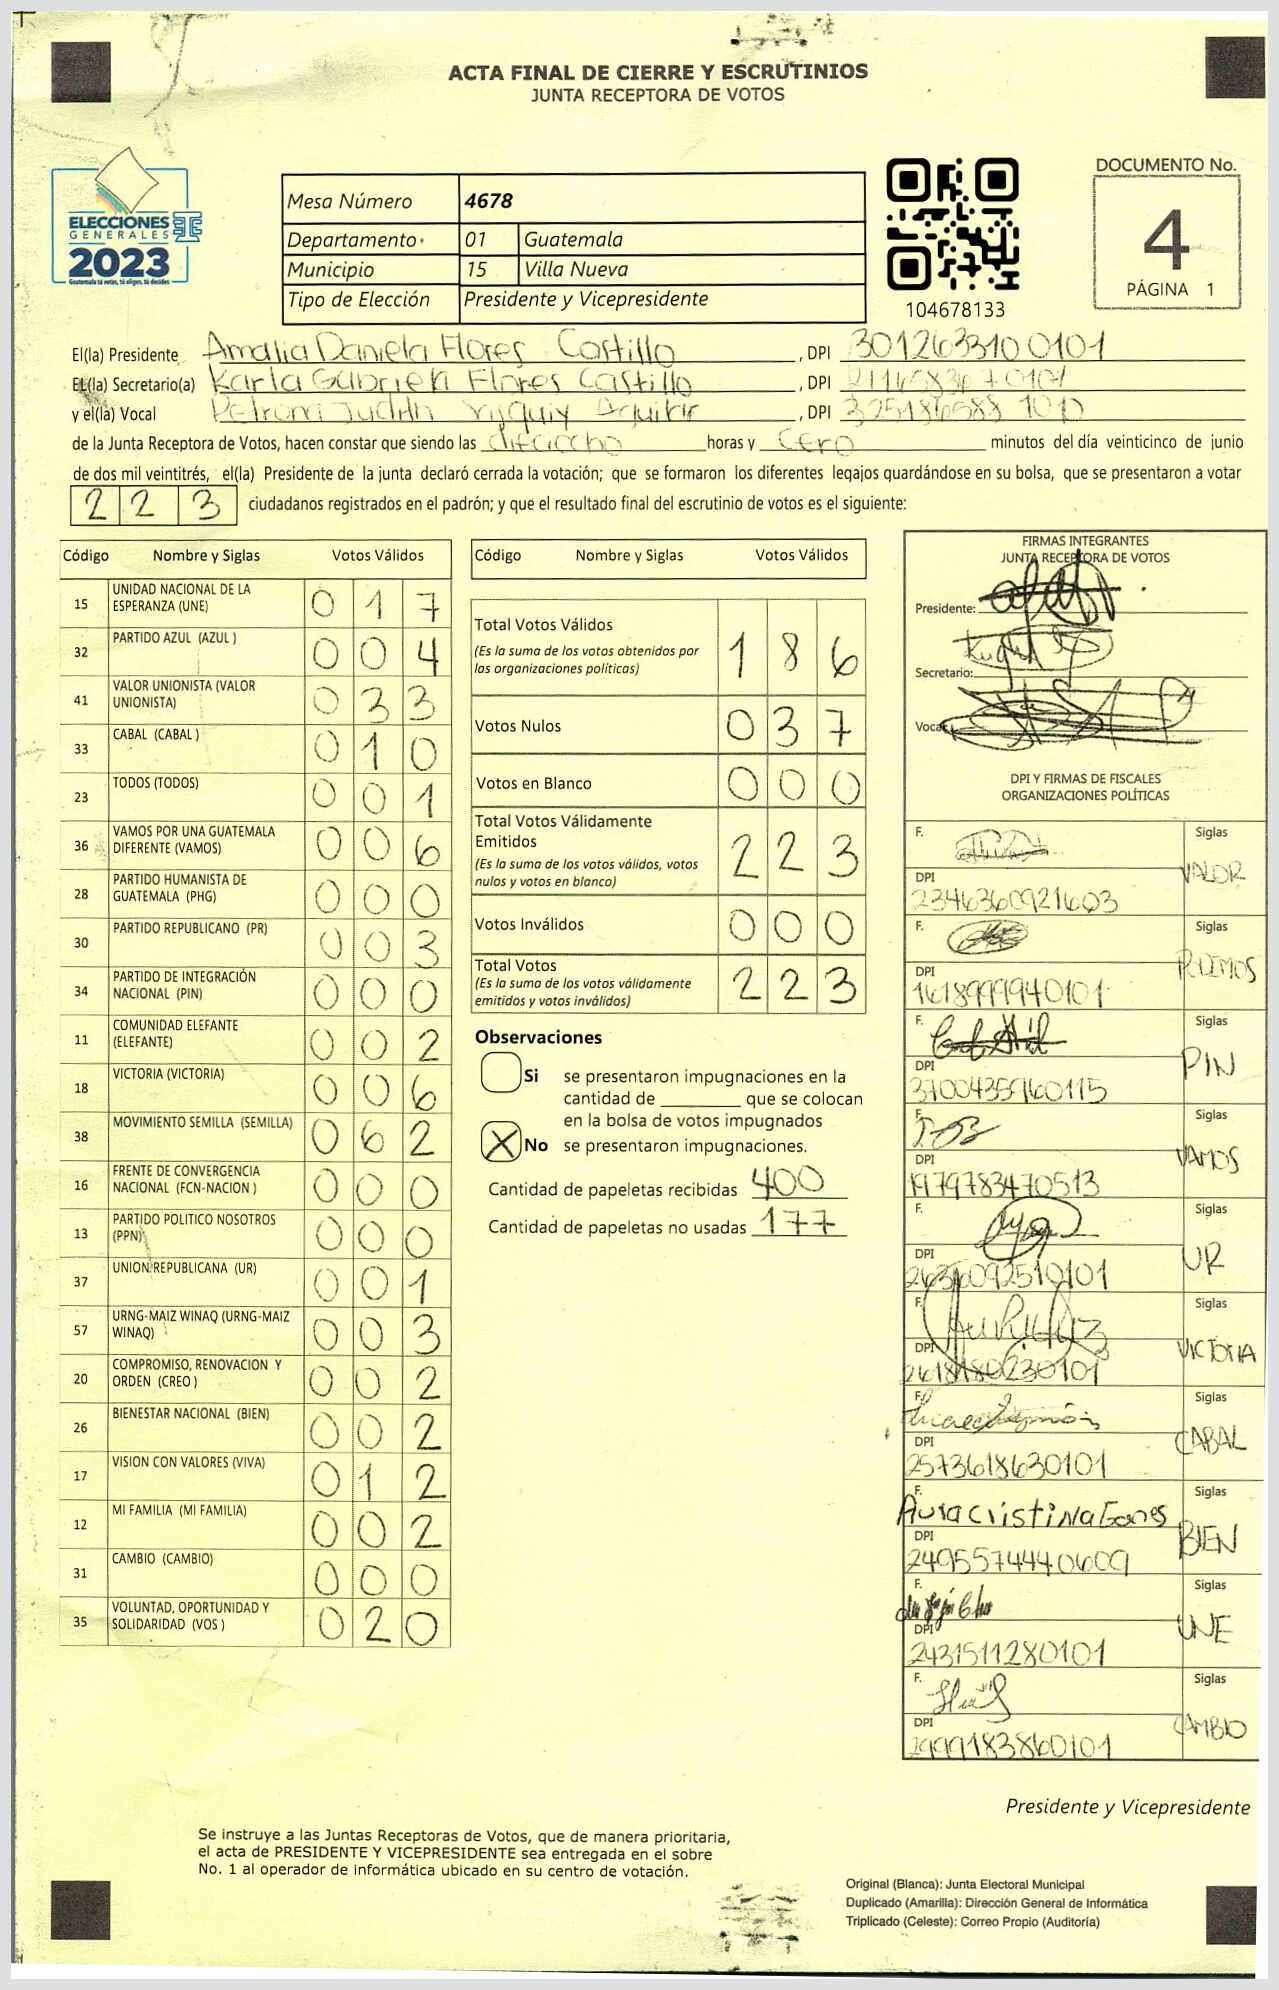 ACTA FINAL DE CIERRE Y ESCRUTINIOS
JUNTA RECEPTORA DE VOTOS
ELECCIONES
GENERALES
2023
Guatemala tú votas, tú eliges, tú decides
Mesa Número 4678
Departamento 01 Guatemala
Municipio 15 Villa Nueva
Tipo de Elección Presidente y Vicepresidente
104678133
DOCUMENTO No.
4
PÁGINA 1
El(la) Presidente Amalia Daniela Flores Castillo, DPI 3012633100101
El(la) Secretario(a) Karla Gabriela Flores Castillo, DPI
y el(la) Vocal Judith, DPI
de la Junta Receptora de Votos, hacen constar que siendo las dieciocho horas y cero minutos del día veinticinco de junio
de dos mil veintitrés, el(la) Presidente de la junta declaró cerrada la votación; que se formaron los diferentes legajos quardándose en su bolsa, que se presentaron a votar
2 2 3 ciudadanos registrados en el padrón; y que el resultado final del escrutinio de votos es el siguiente:
Código Nombre y Siglas Votos Válidos
15 UNIDAD NACIONAL DE LA ESPERANZA (UNE) 0 1 7
32 PARTIDO AZUL (AZUL ) 0 0 4
41 VALOR UNIONISTA (VALOR UNIONISTA) 0 3 3
33 CABAL (CABAL ) 0 1 0
23 TODOS (TODOS) 0 0 1
36 VAMOS POR UNA GUATEMALA DIFERENTE (VAMOS) 0 0 6
28 PARTIDO HUMANISTA DE GUATEMALA (PHG) 0 0 0
30 PARTIDO REPUBLICANO (PR) 0 0 3
34 PARTIDO DE INTEGRACIÓN NACIONAL (PIN) 0 0 0
11 COMUNIDAD ELEFANTE (ELEFANTE) 0 0 2
18 VICTORIA (VICTORIA) 0 0 6
38 MOVIMIENTO SEMILLA (SEMILLA) 0 6 2
16 FRENTE DE CONVERGENCIA NACIONAL (FCN-NACION ) 0 0 0
13 PARTIDO POLITICO NOSOTROS (PPN) 0 0 0
37 UNION REPUBLICANA (UR) 0 0 1
57 URNG-MAIZ WINAQ (URNG-MAIZ WINAQ) 0 0 3
20 COMPROMISO, RENOVACION Y ORDEN (CREO ) 0 0 2
26 BIENESTAR NACIONAL (BIEN) 0 0 2
17 VISION CON VALORES (VIVA) 0 1 2
12 MI FAMILIA (MI FAMILIA) 0 0 2
31 CAMBIO (CAMBIO) 0 0 0
35 VOLUNTAD, OPORTUNIDAD Y SOLIDARIDAD (VOS ) 0 2 0
Código Nombre y Siglas Votos Válidos
Total Votos Válidos 1 8 6
(Es la suma de los votos obtenidos por
las organizaciones políticas)
Votos Nulos 0 3 7
Votos en Blanco 0 0 0
Total Votos Válidamente
Emitidos 2 2 3
(Es la suma de los votos válidos, votos
nulos y votos en blanco)
Votos Inválidos 0 0 0
Total Votos 2 2 3
(Es la suma de los votos válidamente
emitidos y votos inválidos)
Observaciones
Si se presentaron impugnaciones en la
cantidad de ________ que se colocan
en la bolsa de votos impugnados
X No se presentaron impugnaciones.
Cantidad de papeletas recibidas 400
Cantidad de papeletas no usadas 177
FIRMAS INTEGRANTES
JUNTA RECEPTORA DE VOTOS
Presidente:
Secretario:
Vocal:
DPI Y FIRMAS DE FISCALES
ORGANIZACIONES POLÍTICAS
F. Siglas VALOR
DPI 2346360921603
F. Siglas
DPI 1618999940101
F. Siglas PIN
DPI
F. Siglas VAMOS
DPI 1979783470513
F. Siglas UR
DPI 2636092510101
F. Siglas VICTORIA
DPI 2618180230101
F. Siglas CABAL
DPI 2573618630101
F. Aura cristina Siglas BIEN
DPI 2495574440609
F. Siglas UNE
DPI 2431511280101
F. Siglas CAMBIO
DPI 2999183860101
Presidente y Vicepresidente
Se instruye a las Juntas Receptoras de Votos, que de manera prioritaria,
el acta de PRESIDENTE Y VICEPRESIDENTE sea entregada en el sobre
No. 1 al operador de informática ubicado en su centro de votación.
Original (Blanca): Junta Electoral Municipal
Duplicado (Amarilla): Dirección General de Informática
Triplicado (Celeste): Correo Propio (Auditoría)